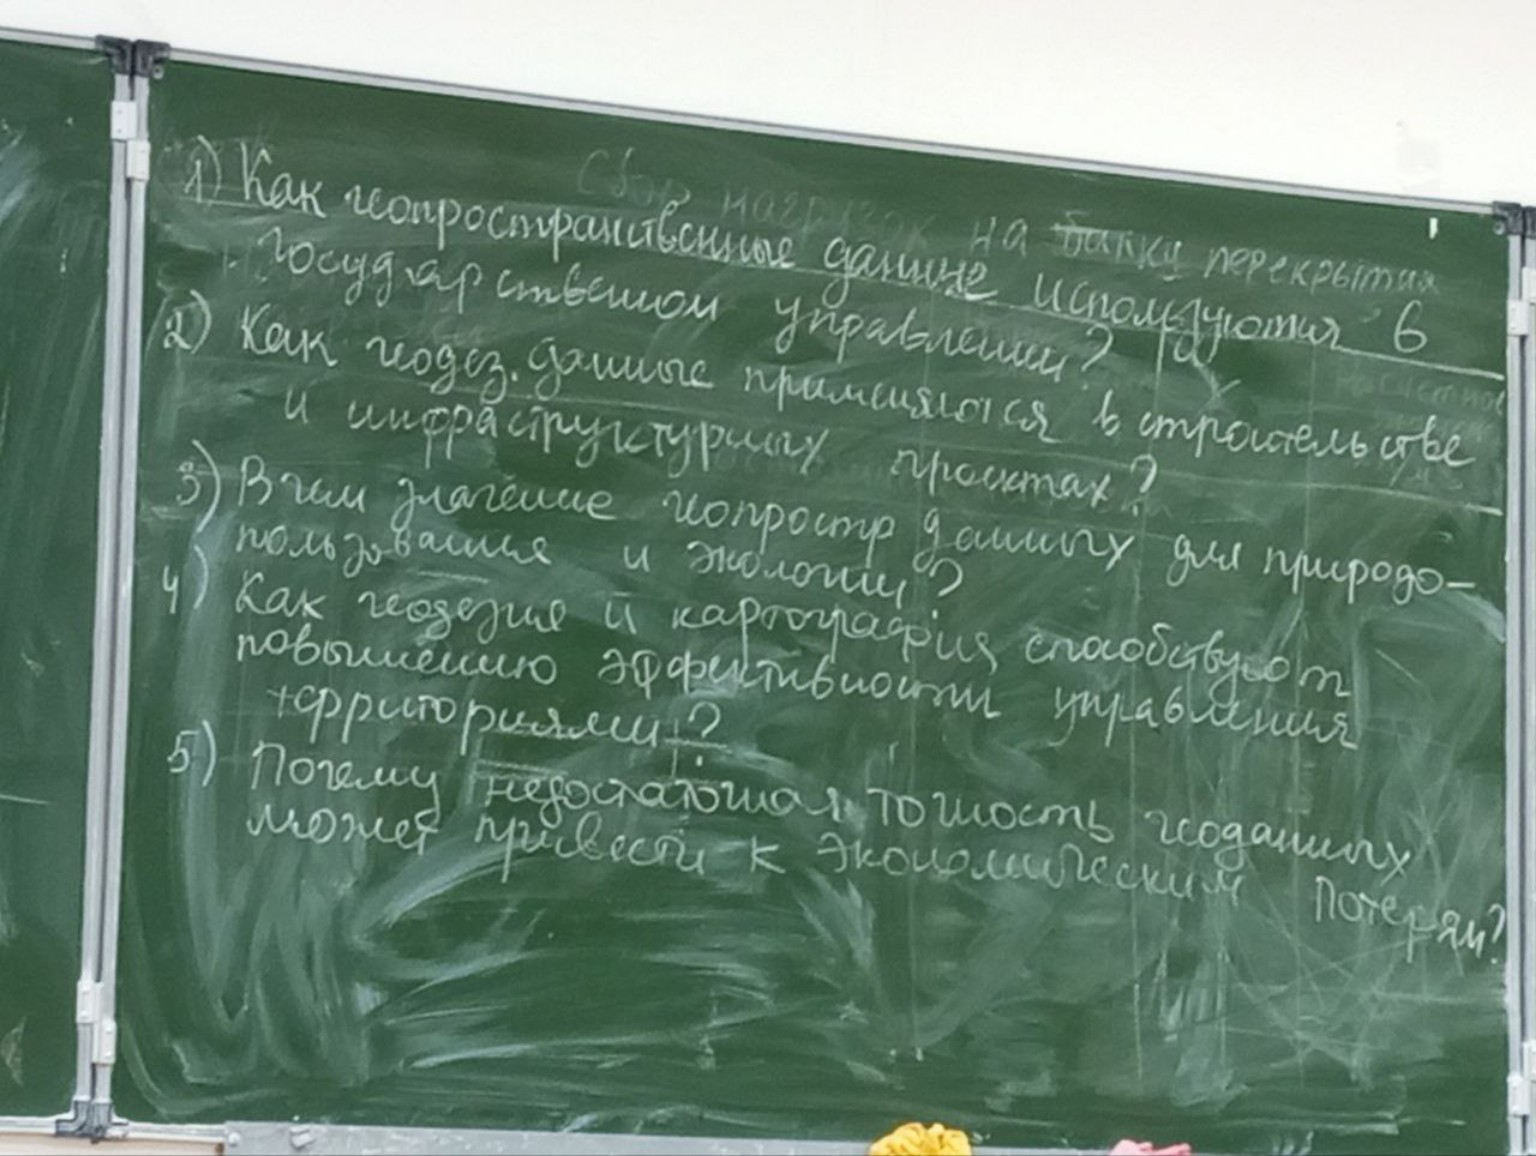 Сбор нагрузок на балку перекрытия
1) Как геопространственные данные используются в
государственном управлении?
2) Как геодез. данные применяются в строительстве
и инфраструктурных проектах?
3) В чем значение геопростр данных для природо-
пользования и экологии?
4) Как геодезия и картография способствуют
повышению эффективности управления
территориями?
5) Почему недостаточная точность геоданных
может привести к экономическим потерям?